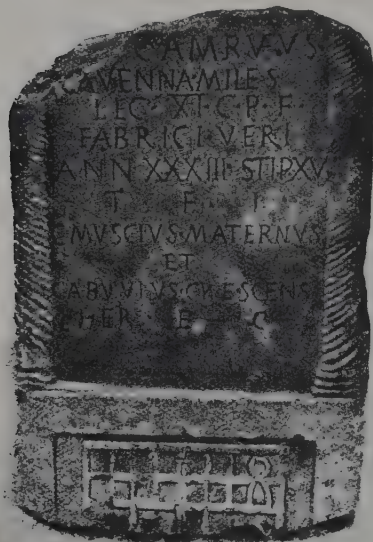 AVENNA·MILES
LEG·XI·C·P·F·
FABRICI VERI
ANN XXXIII·STIP XV
T F I
MVSCIVS·MATERNVS
ET
CRESCENS
HER E C